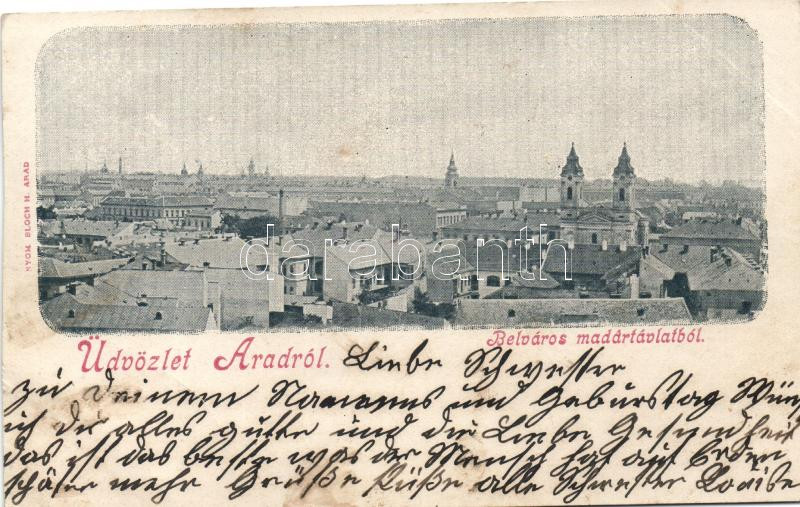 NYOM. BLOCH H. ARAD
darabanth
Belváros madártávlatból.
Üdvözlet Aradról.
Liebe Schwester
zu deinem Namenns und Geburstag Wün
ich dir alles gutte und die Liebe Gesundheit
das ist das beste was der Mensch hat auf Erden
mehr Grüße Küße alle Schwester Loaise